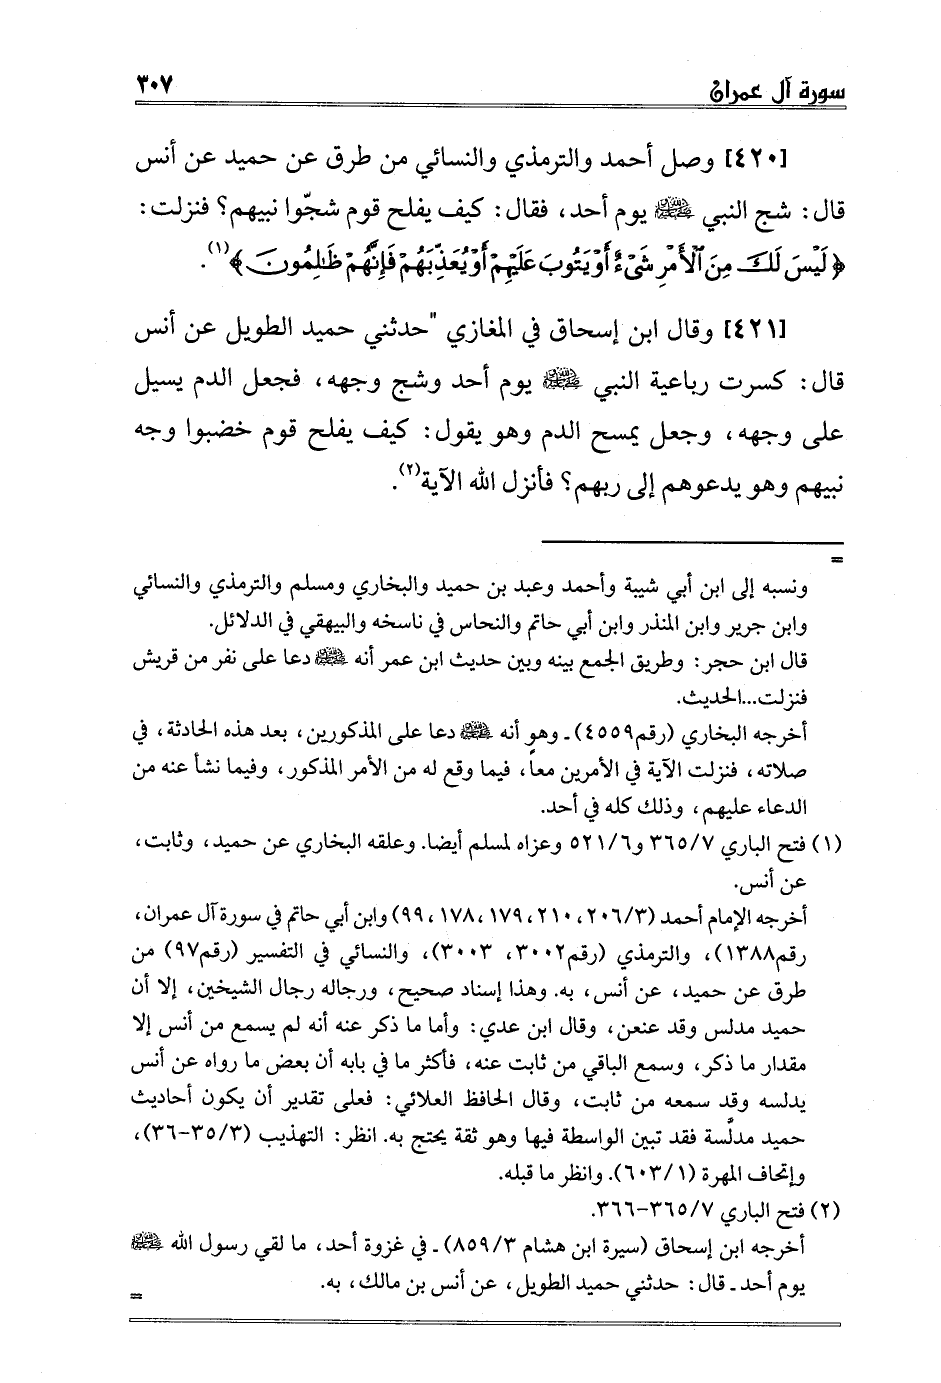 سورة آل عمران ٣٠٧
[٤٢٠] وصل أحمد والترمذي والنسائي من طرق عن حميد عن أنس
قال: شج النبي ﷺ يوم أحد، فقال: كيف يفلح قوم شجّوا نبيهم؟ فنزلت:
﴿لَيْسَ لَكَ مِنَ ٱلْأَمْرِ شَىْءٌ أَوْ يَتُوبَ عَلَيْهِمْ أَوْ يُعَذِّبَهُمْ فَإِنَّهُمْ ظَٰلِمُونَ﴾(١).
[٤٢١] وقال ابن إسحاق في المغازي "حدثني حميد الطويل عن أنس
قال: كسرت رباعية النبي ﷺ يوم أحد وشج وجهه، فجعل الدم يسيل
على وجهه، وجعل يمسح الدم وهو يقول: كيف يفلح قوم خضبوا وجه
نبيهم وهو يدعوهم إلى ربهم؟ فأنزل الله الآية(٢).
=
ونسبه إلى ابن أبي شيبة وأحمد وعبد بن حميد والبخاري ومسلم والترمذي والنسائي
وابن جرير وابن المنذر وابن أبي حاتم والنحاس في ناسخه والبيهقي في الدلائل.
قال ابن حجر: وطريق الجمع بينه وبين حديث ابن عمر أنه ﷺ دعا على نفر من قريش
فنزلت...الحديث.
أخرجه البخاري (رقم٤٥٥٩)ـ وهو أنه ﷺ دعا على المذكورين، بعد هذه الحادثة، في
صلاته، فنزلت الآية في الأمرين معاً، فيما وقع له من الأمر المذكور، وفيما نشأ عنه من
الدعاء عليهم، وذلك كله في أحد.
(١) فتح الباري ٣٦٥/٧ و٥٢١/٦ وعزاه لمسلم أيضا. وعلقه البخاري عن حميد، وثابت،
عن أنس.
أخرجه الإمام أحمد (٢٠٦/٣، ٢١٠، ١٧٩، ١٧٨، ٩٩) وابن أبي حاتم في سورة آل عمران،
رقم١٣٨٨)، والترمذي (رقم٣٠٠٢، ٣٠٠٣)، والنسائي في التفسير (رقم٩٧) من
طرق عن حميد، عن أنس، به. وهذا إسناد صحيح، ورجاله رجال الشيخين، إلا أن
حميد مدلس وقد عنعن، وقال ابن عدي: وأما ما ذكر عنه أنه لم يسمع من أنس إلا
مقدار ما ذكر، وسمع الباقي من ثابت عنه، فأكثر ما في بابه أن بعض ما رواه عن أنس
يدلسه وقد سمعه من ثابت، وقال الحافظ العلائي: فعلى تقدير أن يكون أحاديث
حميد مدلّسة فقد تبين الواسطة فيها وهو ثقة يحتج به. انظر: التهذيب (٣٥/٣-٣٦)،
وإتحاف المهرة (٦٠٣/١). وانظر ما قبله.
(٢) فتح الباري ٣٦٥/٧-٣٦٦.
أخرجه ابن إسحاق (سيرة ابن هشام ٨٥٩/٣)ـ في غزوة أحد، ما لقي رسول الله ﷺ
يوم أحدـ قال: حدثني حميد الطويل، عن أنس بن مالك، به.
=